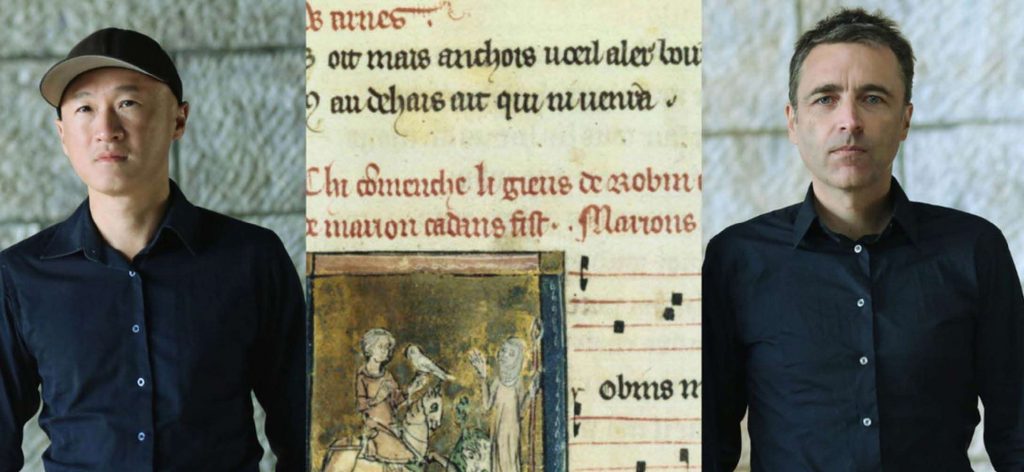 oit mais anchois uoeil aler
au dehais ait qui ni uenra .
Chi cōmenche li gieus de Robin
marion cadans fist . . Marions
obins m